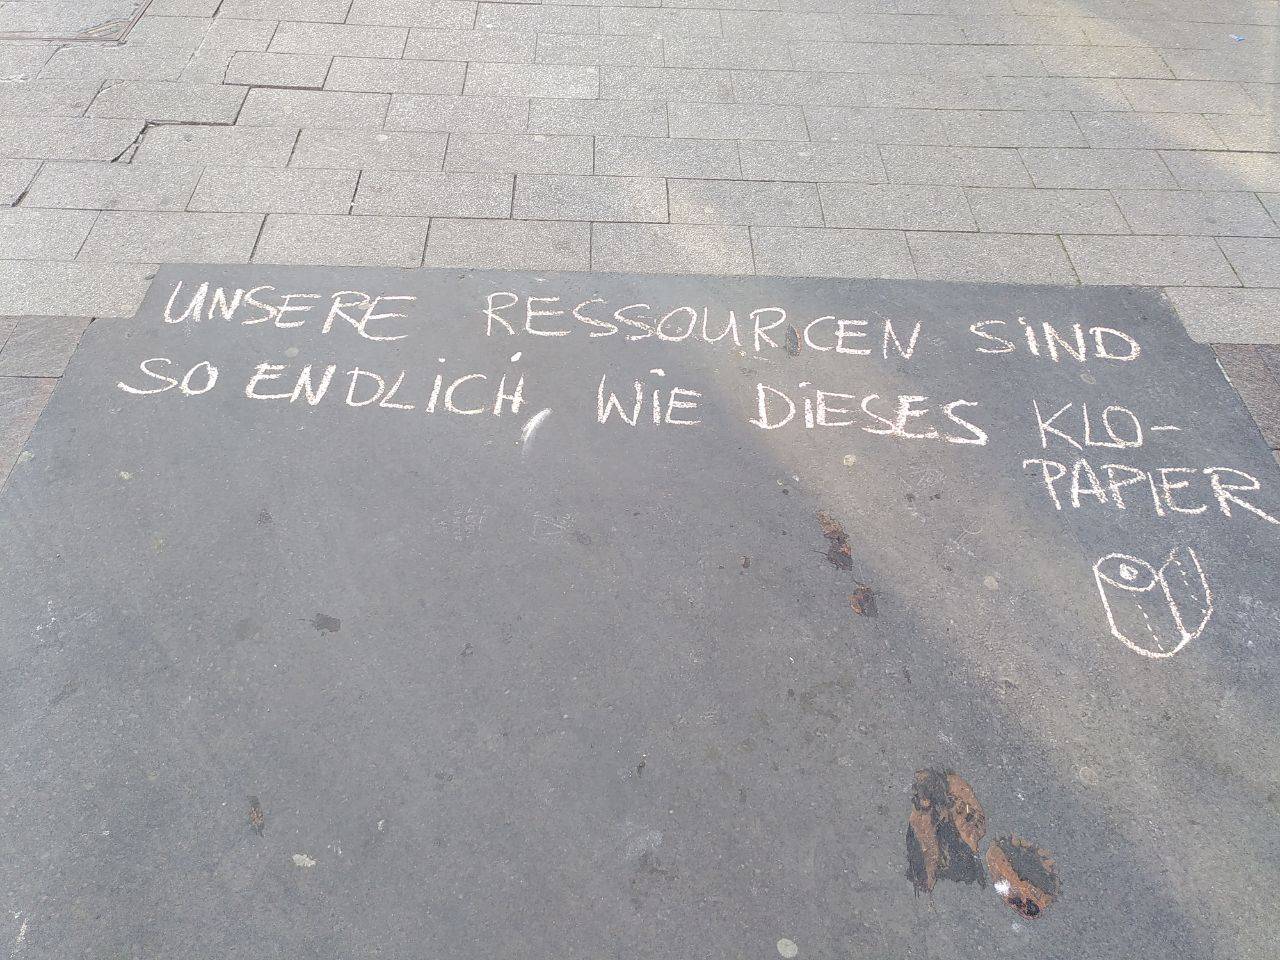 UNSERE RESSOURCEN SIND
SO ENDLICH, WIE DIESES KLO-
PAPIER